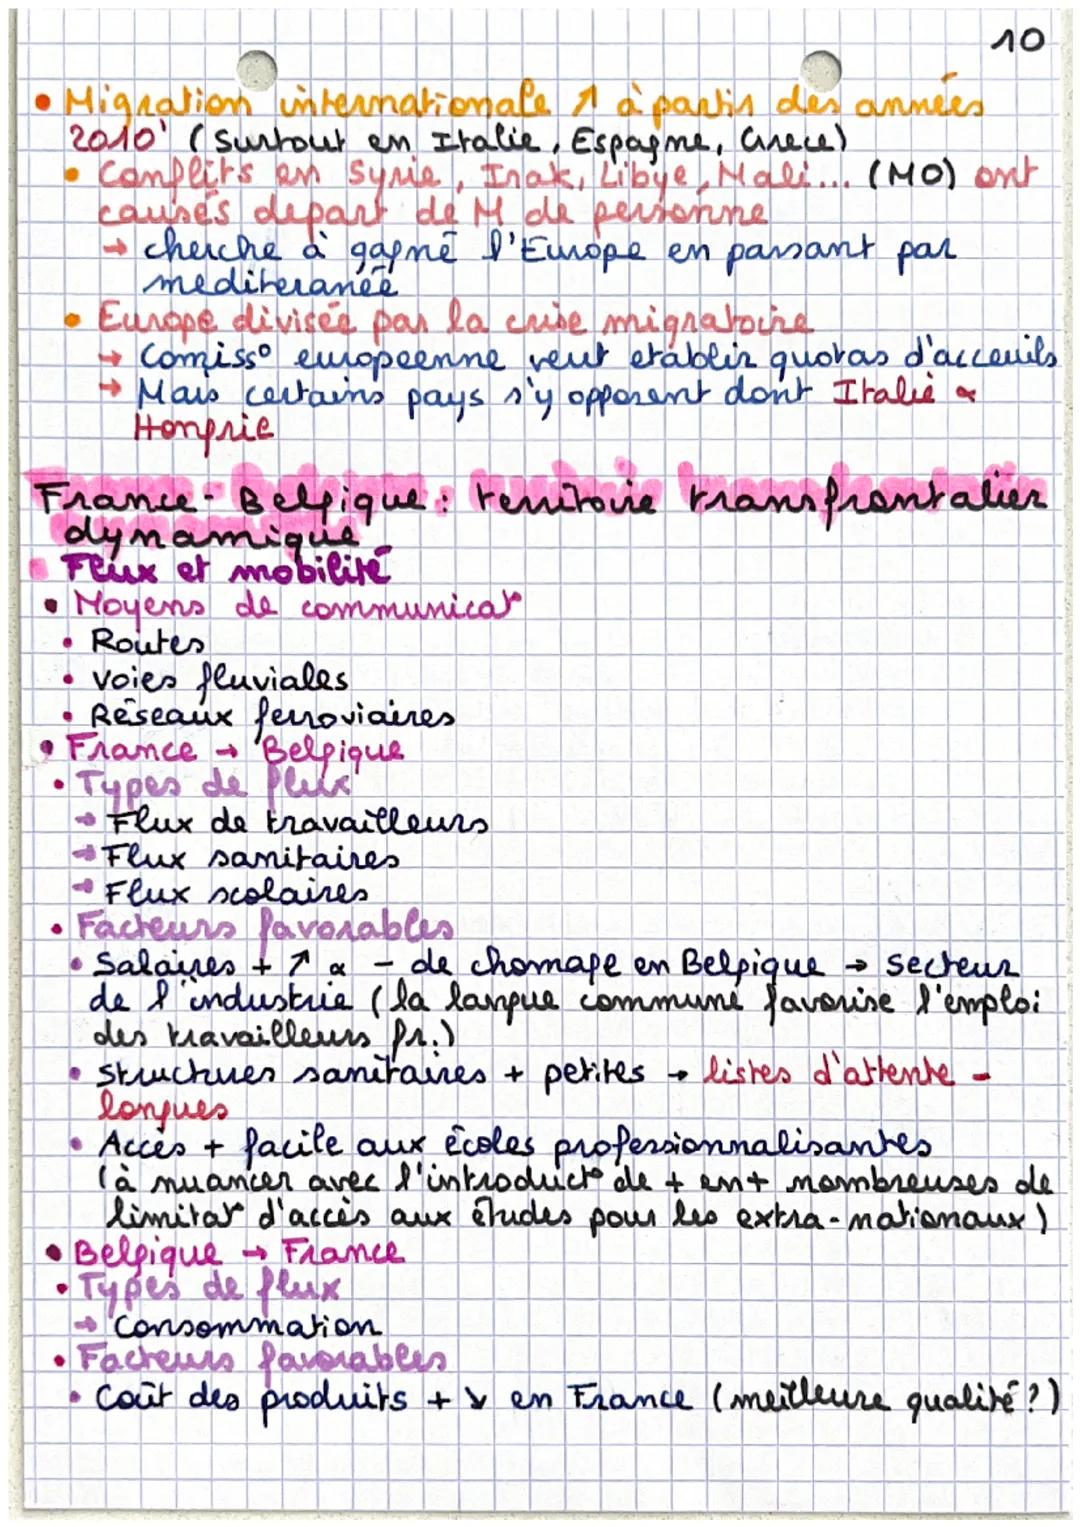 10
• Migration internationale ↗ à partir des années
2010' (Surtout en Italie, Espagne, Grece)
• Conflits en Syrie, Irak, Libye, Mali... (MO) ont
causés depart de M de personne
→ cherche à gagné l'Europe en passant par
mediteranée
• Europe divisée par la crise migratoire
→ Comiss° europeenne veut etablir quotas d'acceuils
→ Mais certains pays s'y opposent dont Italie &
Hongrie
France - Belgique : territoire transfrontalier
dynamique
Flux et mobilité
• Moyens de communicat°
• Routes
• voies fluviales
• Réseaux ferroviaires
• France → Belgique
• Types de flux
→ Flux de travailleurs
→ Flux sanitaires
→ Flux scolaires
• Facteurs favorables
• Salaires + ↗ & - de chomage en Belgique → secteur
de l'industrie (la langue commune favorise l'emploi
des travailleurs fr.)
• structures sanitaires + petites → listes d'attente -
longues
• Accès + facile aux écoles professionnalisantes
(à nuancer avec l'introduct° de + en + nombreuses de
limitat° d'accès aux études pour les extra-nationaux)
• Belgique → France
• Types de flux
→ Consommation
• Facteurs favorables
• Coût des produits + ↘ en France (meilleure qualité ?)